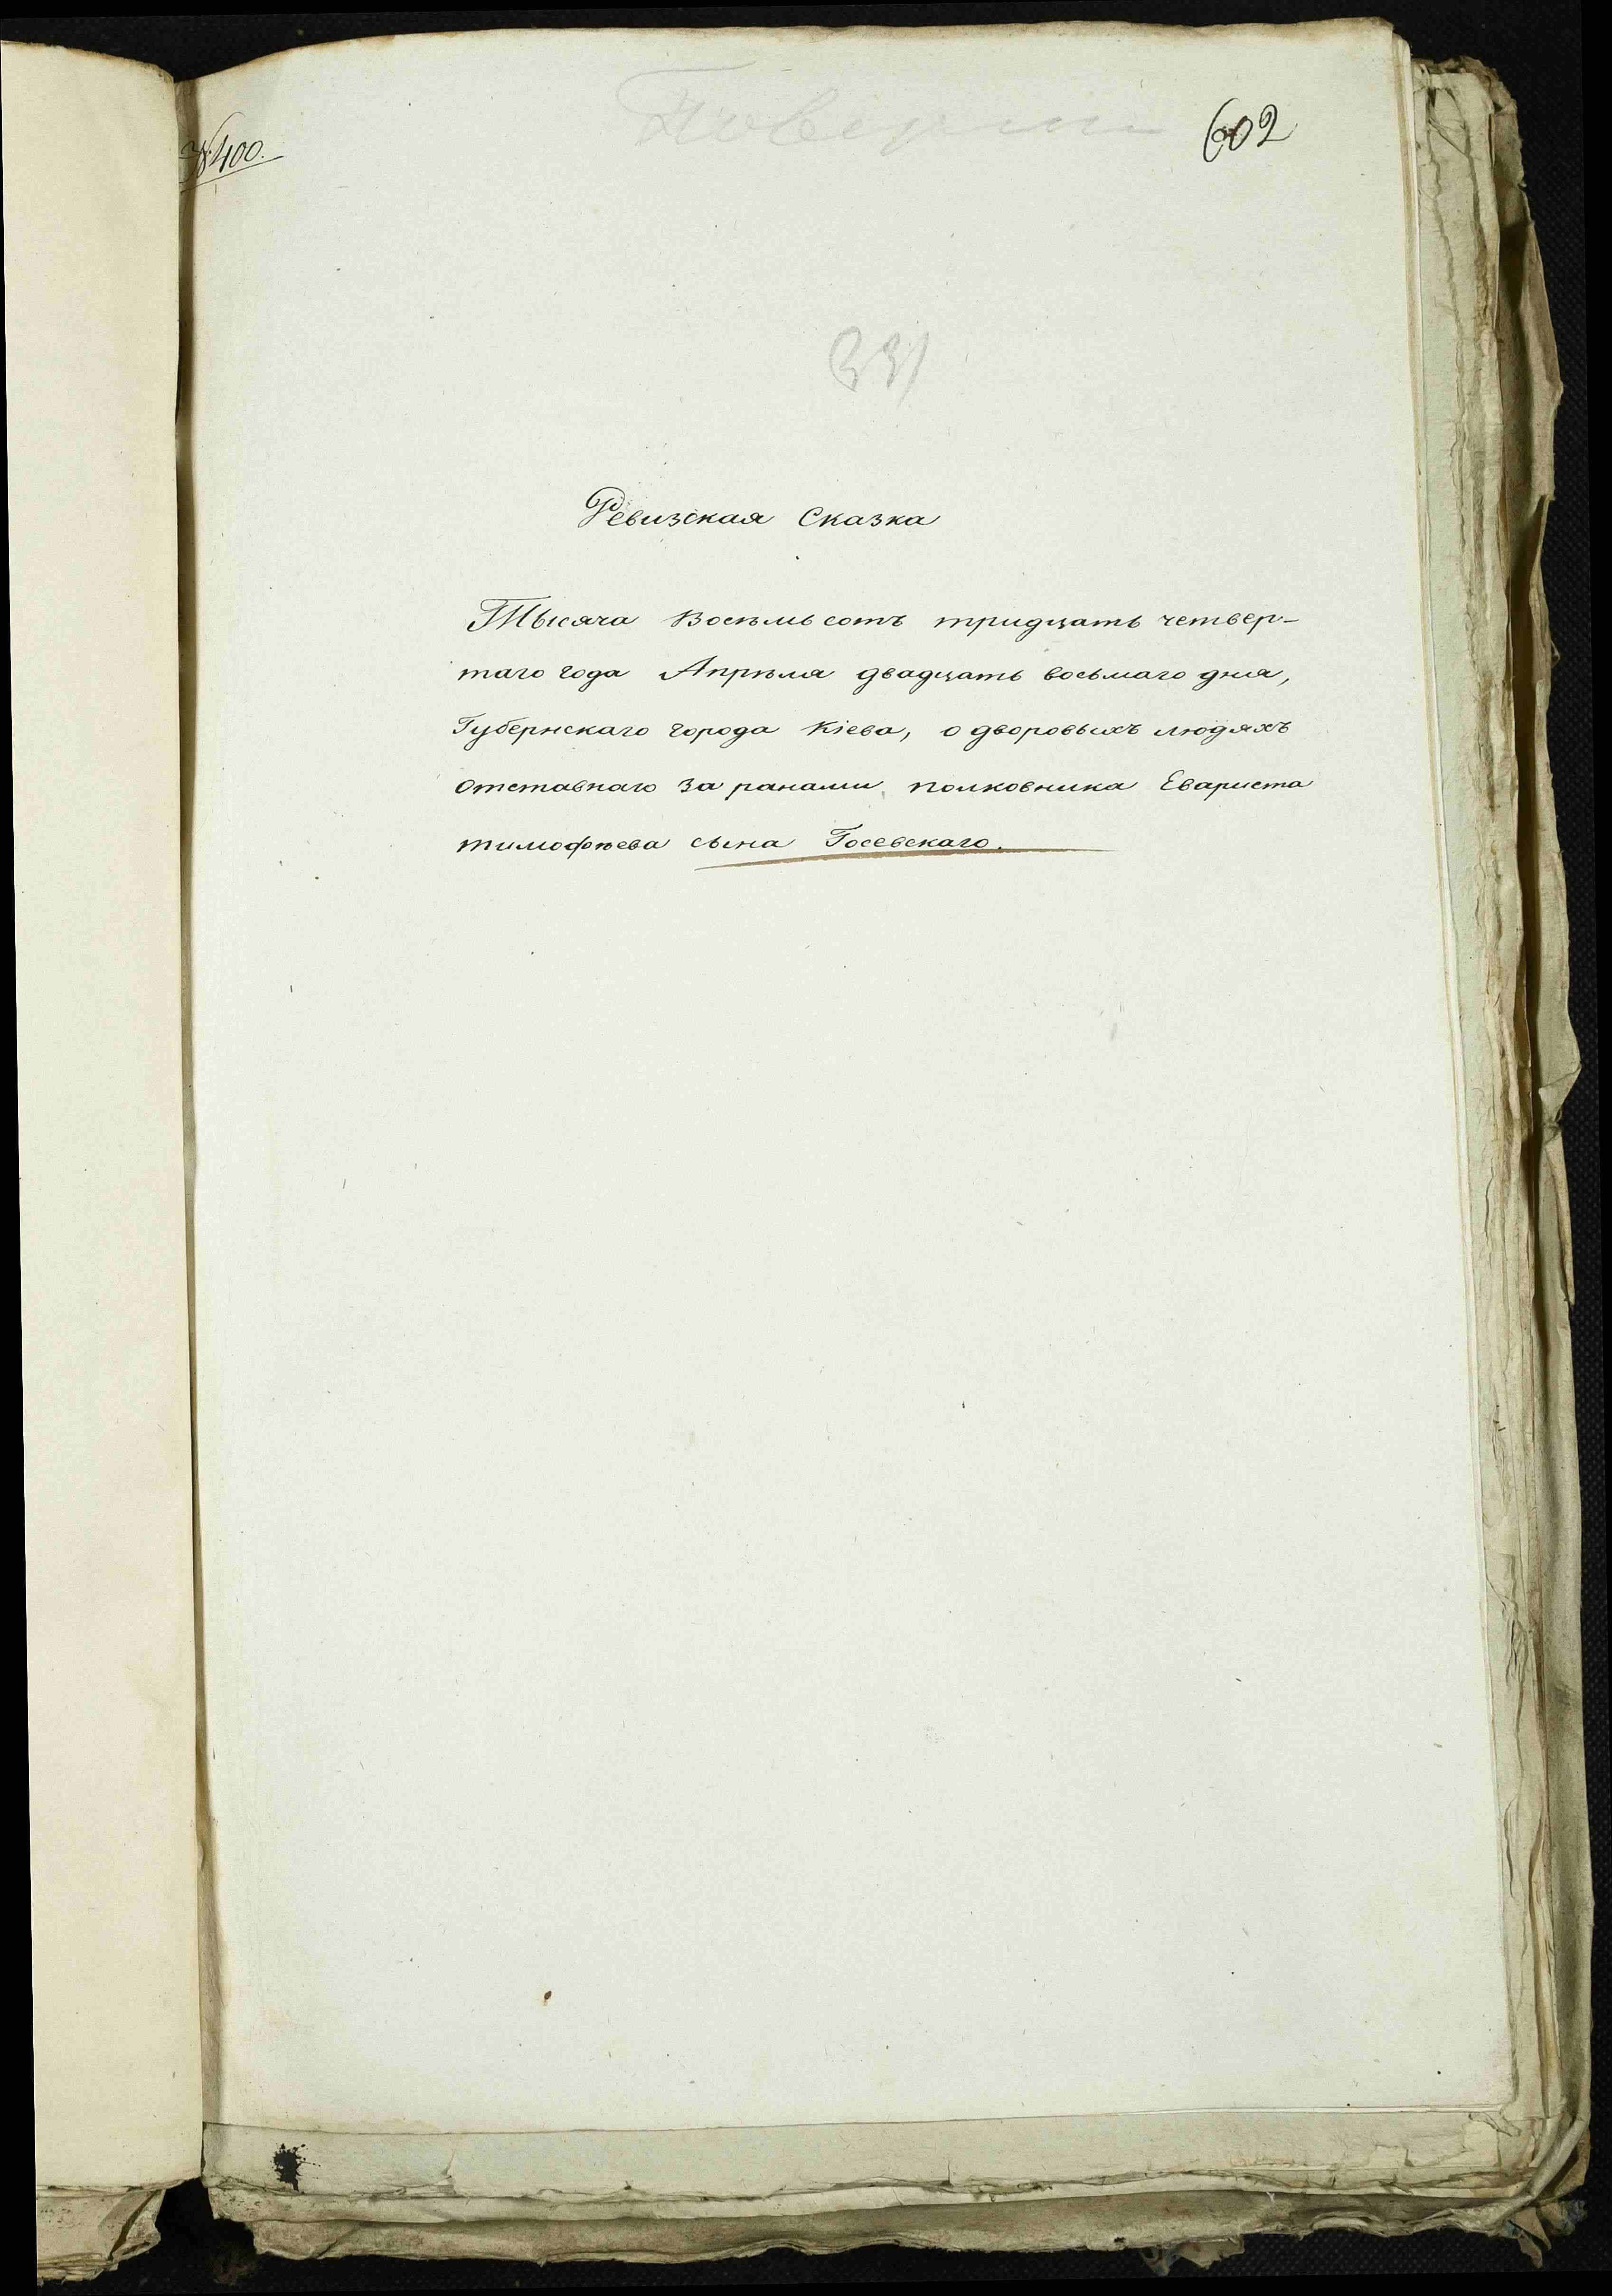 № 400.
602
331
Ревизская Сказка
Тысяча Восемь сотъ тридцать четвер-
таго года Апрѣля двадцать восьмаго дня,
Губернскаго города Кіева, о дворовыхъ людяхъ
отставнаго за ранами полковника Евариста
тимофѣева сына Госевскаго.